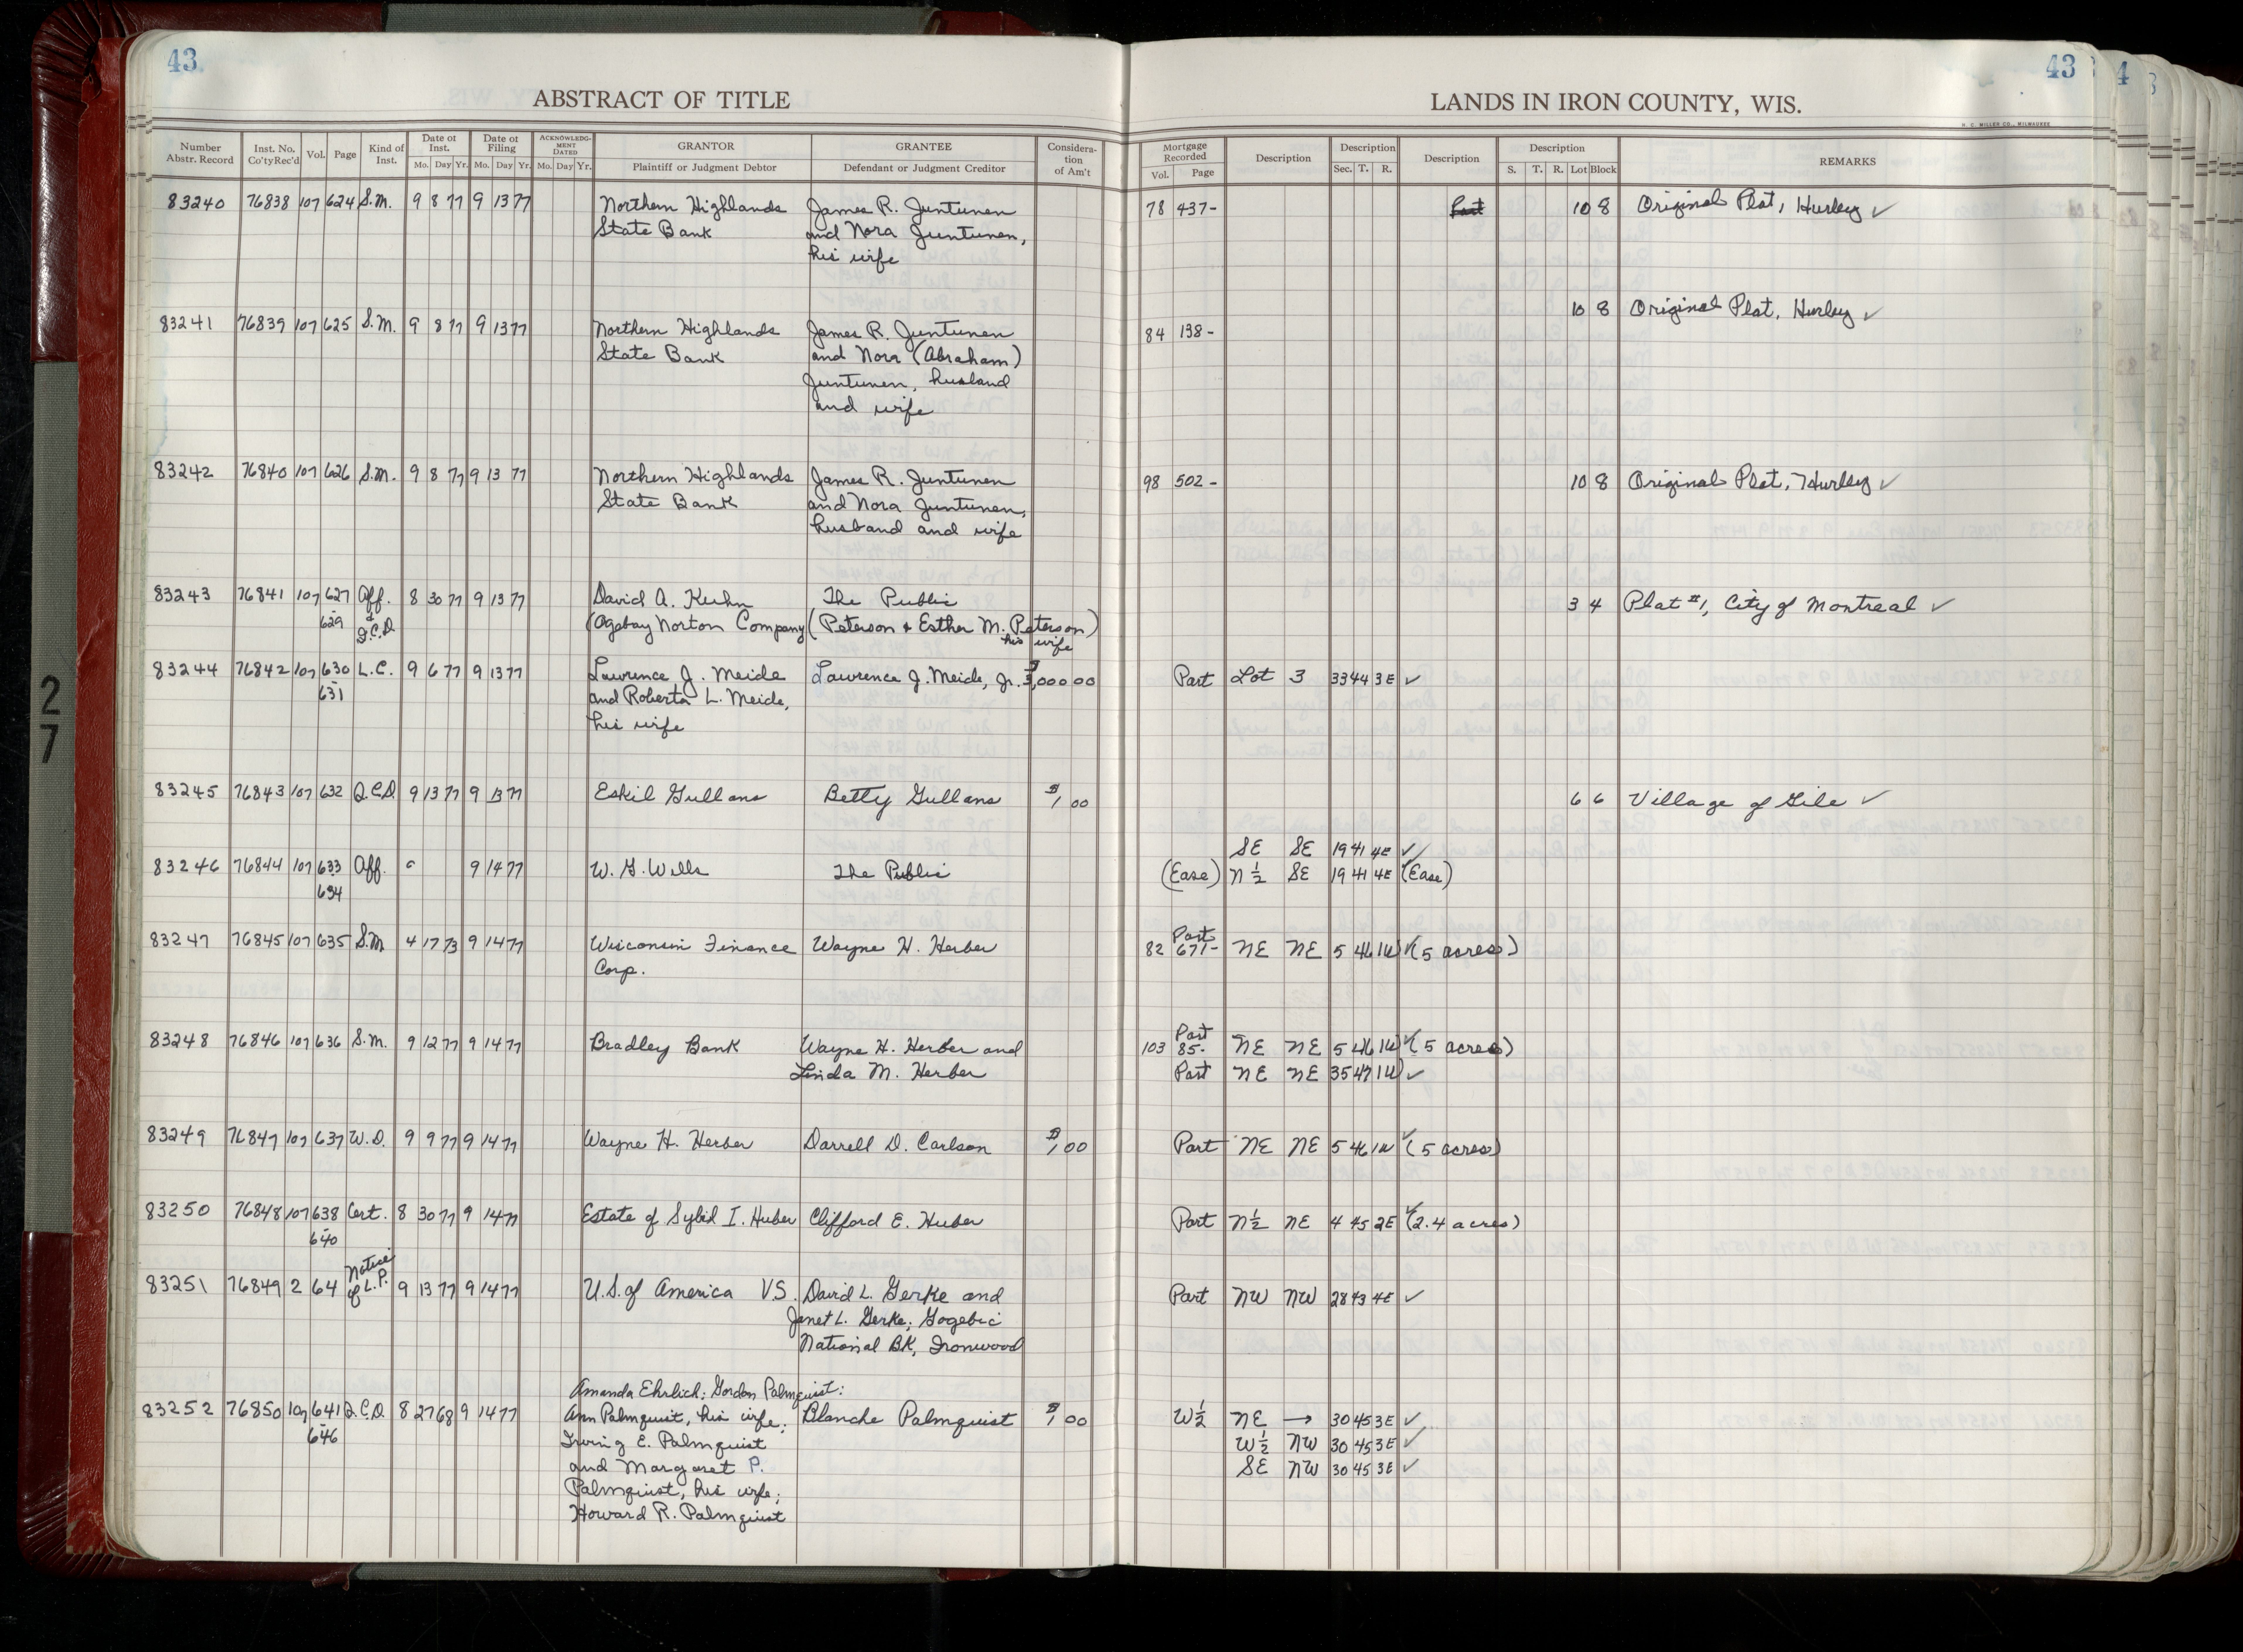 43
43
4
ABSTRACT OF TITLE
LANDS IN IRON COUNTY, WIS.
H. C. MILLER CO., MILWAUKEE
Number Abstr. Record | Inst. No. Co'tyRec'd | Vol. | Page | Kind of Inst. | Date of Inst. Mo. Day Yr. | Date of Filing Mo. Day Yr. | ACKNOWLEDGMENT DATED Mo. Day Yr. | GRANTOR Plaintiff or Judgment Debtor | GRANTEE Defendant or Judgment Creditor | Consideration of Am't | Mortgage Recorded Vol. Page | Description | Description Sec. T. R. | Description | Description S. T. R. Lot Block | REMARKS
83240 76838 107 624 S.M. 9 8 77 9 13 77 Northern Highlands James R. Juntunen 78 437- Part 10 8 Original Plat, Hurley ✓
State Bank and Nora Juntunen,
his wife
10 8 Original Plat, Hurley ✓
83241 76839 107 625 S.M. 9 8 77 9 13 77 Northern Highlands James R. Juntunen 84 198-
State Bank and Nora (Abraham)
Juntunen, husband
and wife
83242 76840 107 626 S.M. 9 8 77 9 13 77 Northern Highlands James R. Juntunen 98 502- 10 8 Original Plat, Hurley ✓
State Bank and Nora Juntunen,
husband and wife
83243 76841 107 627 Aff. 8 30 77 9 13 77 David A. Kuhn The Public 3 4 Plat #1, City of Montreal ✓
- 629 & Q.C.D. (Ogebay Norton Company) (Peterson & Esther M. Peterson)
his wife
83244 76842 107 630 L.C. 9 6 77 9 13 77 Lawrence J. Meide Lawrence J. Meide, Jr. Part Lot 3 33 44 3E ✓
- 631 and Roberta L. Meide,
his wife
83245 76843 107 632 Q.C.D. 9 13 77 9 13 77 Eskil Gullans Betty Gullans $1 00 6 6 Village of Gile ✓
SE SE 19 41 4E ✓
83246 76844 107 633 Aff. 9 14 77 W. G. Wells The Public (Ease) N½ SE 19 41 4E ✓ (Ease)
634
Part
83247 76845 107 635 S.M. 4 17 73 9 14 77 Wisconsin Finance Wayne H. Herber 82 671- NE NE 5 46 1W ✓ (5 acres)
Corp.
Part
83248 76846 107 636 S.M. 9 12 77 9 14 77 Bradley Bank Wayne H. Herber and 103 85- NE NE 5 46 1W ✓ (5 acres)
Linda M. Herber Part NE NE 35 47 1W ✓
83249 76847 107 637 W.D. 9 9 77 9 14 77 Wayne H. Herber Darrell D. Carlson $1 00 Part NE NE 5 46 1W ✓ (5 acres)
83250 76848 107 638 Cert. 8 30 77 9 14 77 Estate of Sybid I. Huber Clifford E. Huber Part N½ NE 4 45 2E ✓ (2.4 acres)
- 640
83251 76849 2 64 Notice of L.P. 9 13 77 9 14 77 U.S. of America VS. David L. Gerke and Part NW NW 28 43 4E ✓
Janet L. Gerke; Gogebic
National BK, Ironwood
Amanda Ehrlich; Gordon Palmquist:
83252 76850 107 641 Q.C.D. 8 27 68 9 14 77 Ann Palmquist, his wife; Blanche Palmquist $1 00 W½ NE → 30 45 3E ✓
- 646 Irving E. Palmquist W½ NW 30 45 3E ✓
and Margaret P. SE NW 30 45 3E ✓
Palmquist, his wife;
Howard R. Palmquist
27